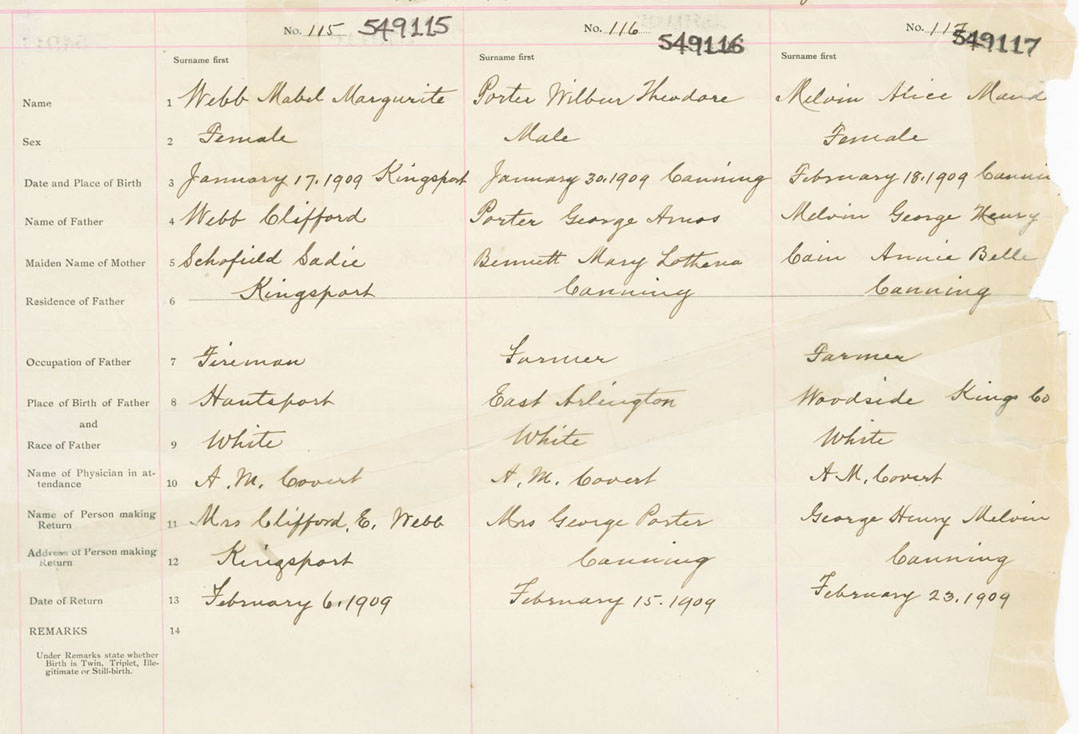 No. 115 549115 No. 116 549116 No. 117 549117
Surname first Surname first Surname first
Name 1 Webb Mabel Margurite Porter Wilbur Theodore Melvin Alice Maud
Sex 2 Female Male Female
Date and Place of Birth 3 January 17. 1909 Kingsport January 30. 1909 Canning February 18. 1909 Cannin
Name of Father 4 Webb Clifford Porter George Amos Melvin George Henry
Maiden Name of Mother 5 Schofield Sadie Bennett Mary Lothena Cain Annie Belle
Residence of Father 6 Kingsport Canning Canning
Occupation of Father 7 Fireman Farmer Farmer
Place of Birth of Father 8 Hantsport East Arlington Woodside Kings Co
and
Race of Father 9 White White White
Name of Physician in at-
tendance 10 A. M. Covert A. M. Covert A. M. Covert
Name of Person making
Return 11 Mrs Clifford. E. Webb Mrs George Porter George Henry Melvin
Address of Person making
Return 12 Kingsport Canning Canning
Date of Return 13 February 6. 1909 February 15. 1909 February 23. 1909
REMARKS 14
Under Remarks state whether
Birth is Twin, Triplet, Ille-
gitimate or Still-birth.